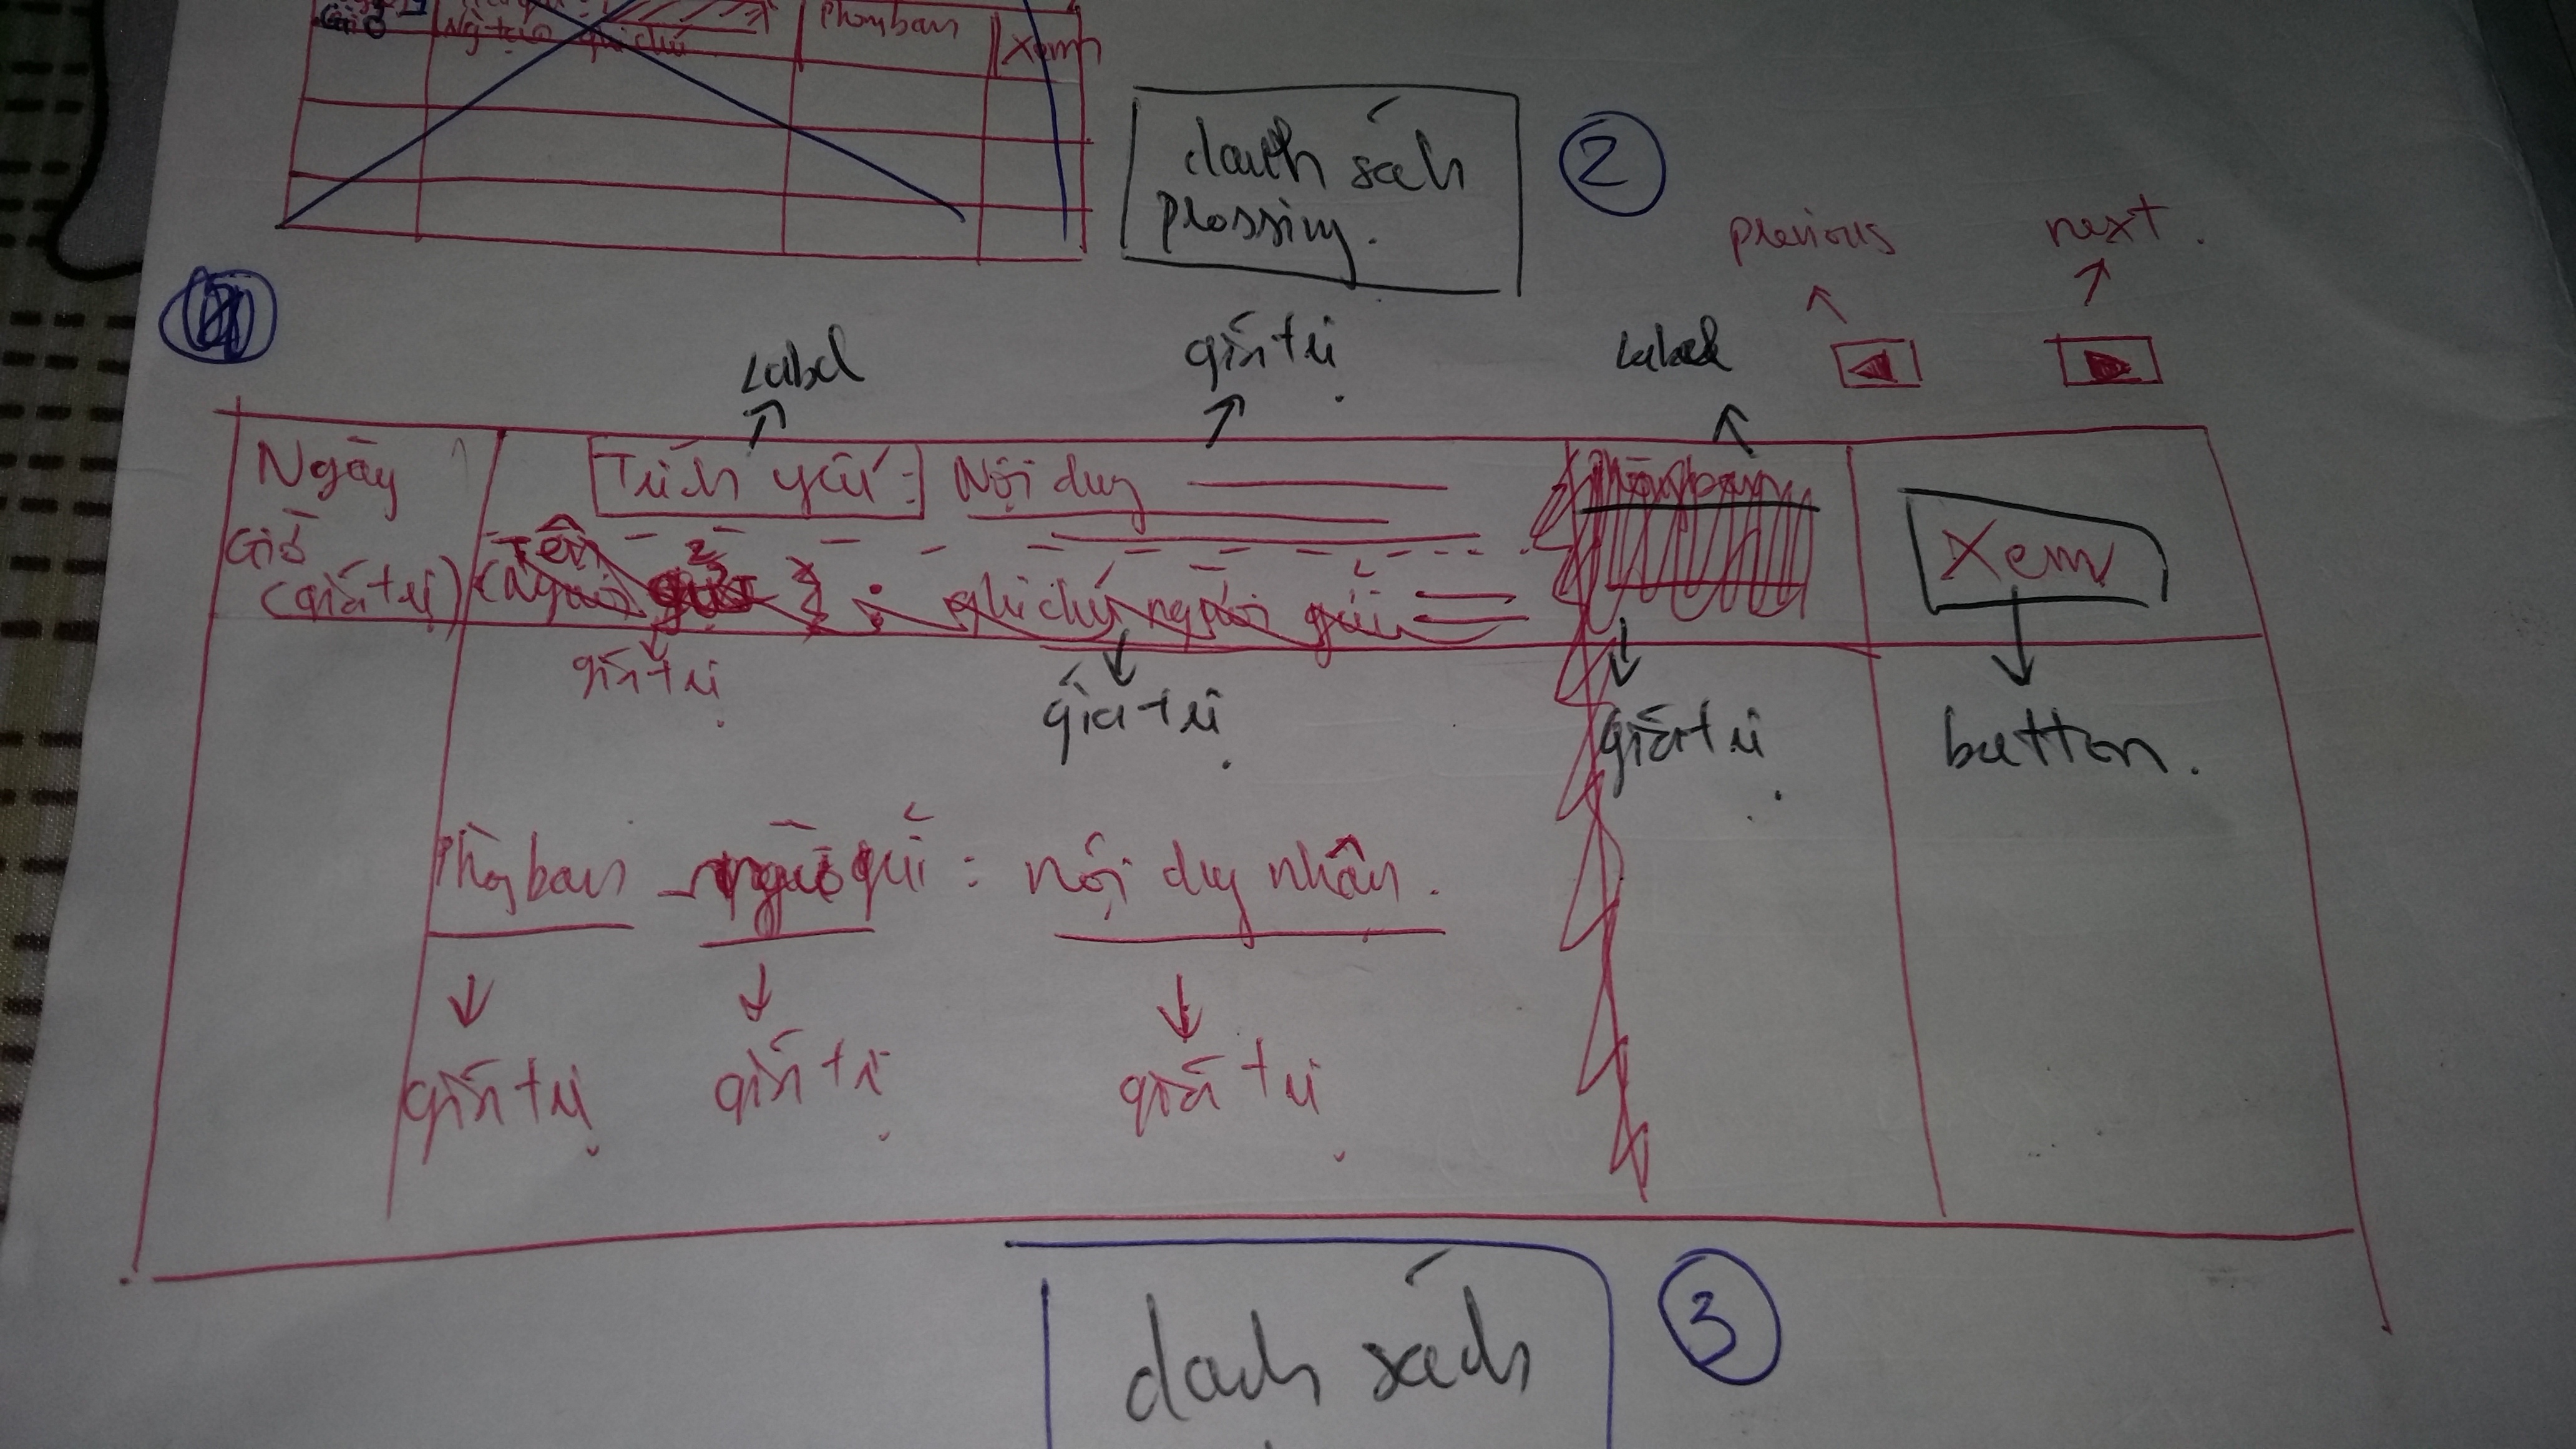 Giờ
Phòng ban
Xem
Ng gửi: ghi chú
danh sách
prossing.
2
previous
next.
Label
giá trị
Label
Ngày
Giờ
(giá trị)
Trích yếu: Nội dung
Phòng ban
Xem
Tên
(người gửi): ghi chú người gửi
giá trị
giá trị
giá trị
button.
Phòng ban - người gửi: nội dung nhắn.
giá trị
giá trị
giá trị
danh sách
3